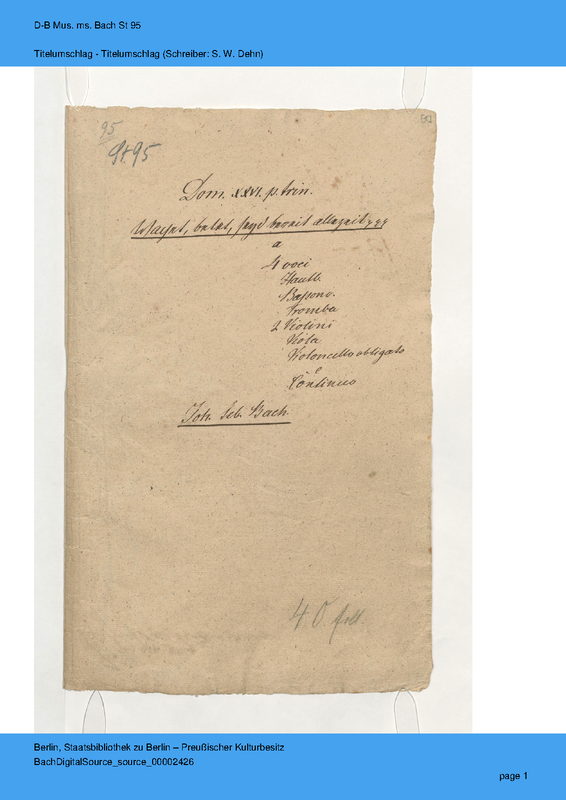 D-B Mus. ms. Bach St 95
Titelumschlag - Titelumschlag (Schreiber: S. W. Dehn)
95
St. 95
Dom. XXVI. p. trin.
Wachet, betet, seyd bereit allezeit
a
4 voci
Hautb.
Bassono.
Tromba
2 Violini
Viola
Violoncello obligato
e
Continuo
Joh. Seb. Bach.
4.0.
Berlin, Staatsbibliothek zu Berlin – Preußischer Kulturbesitz
BachDigitalSource_source_00002426
page 1